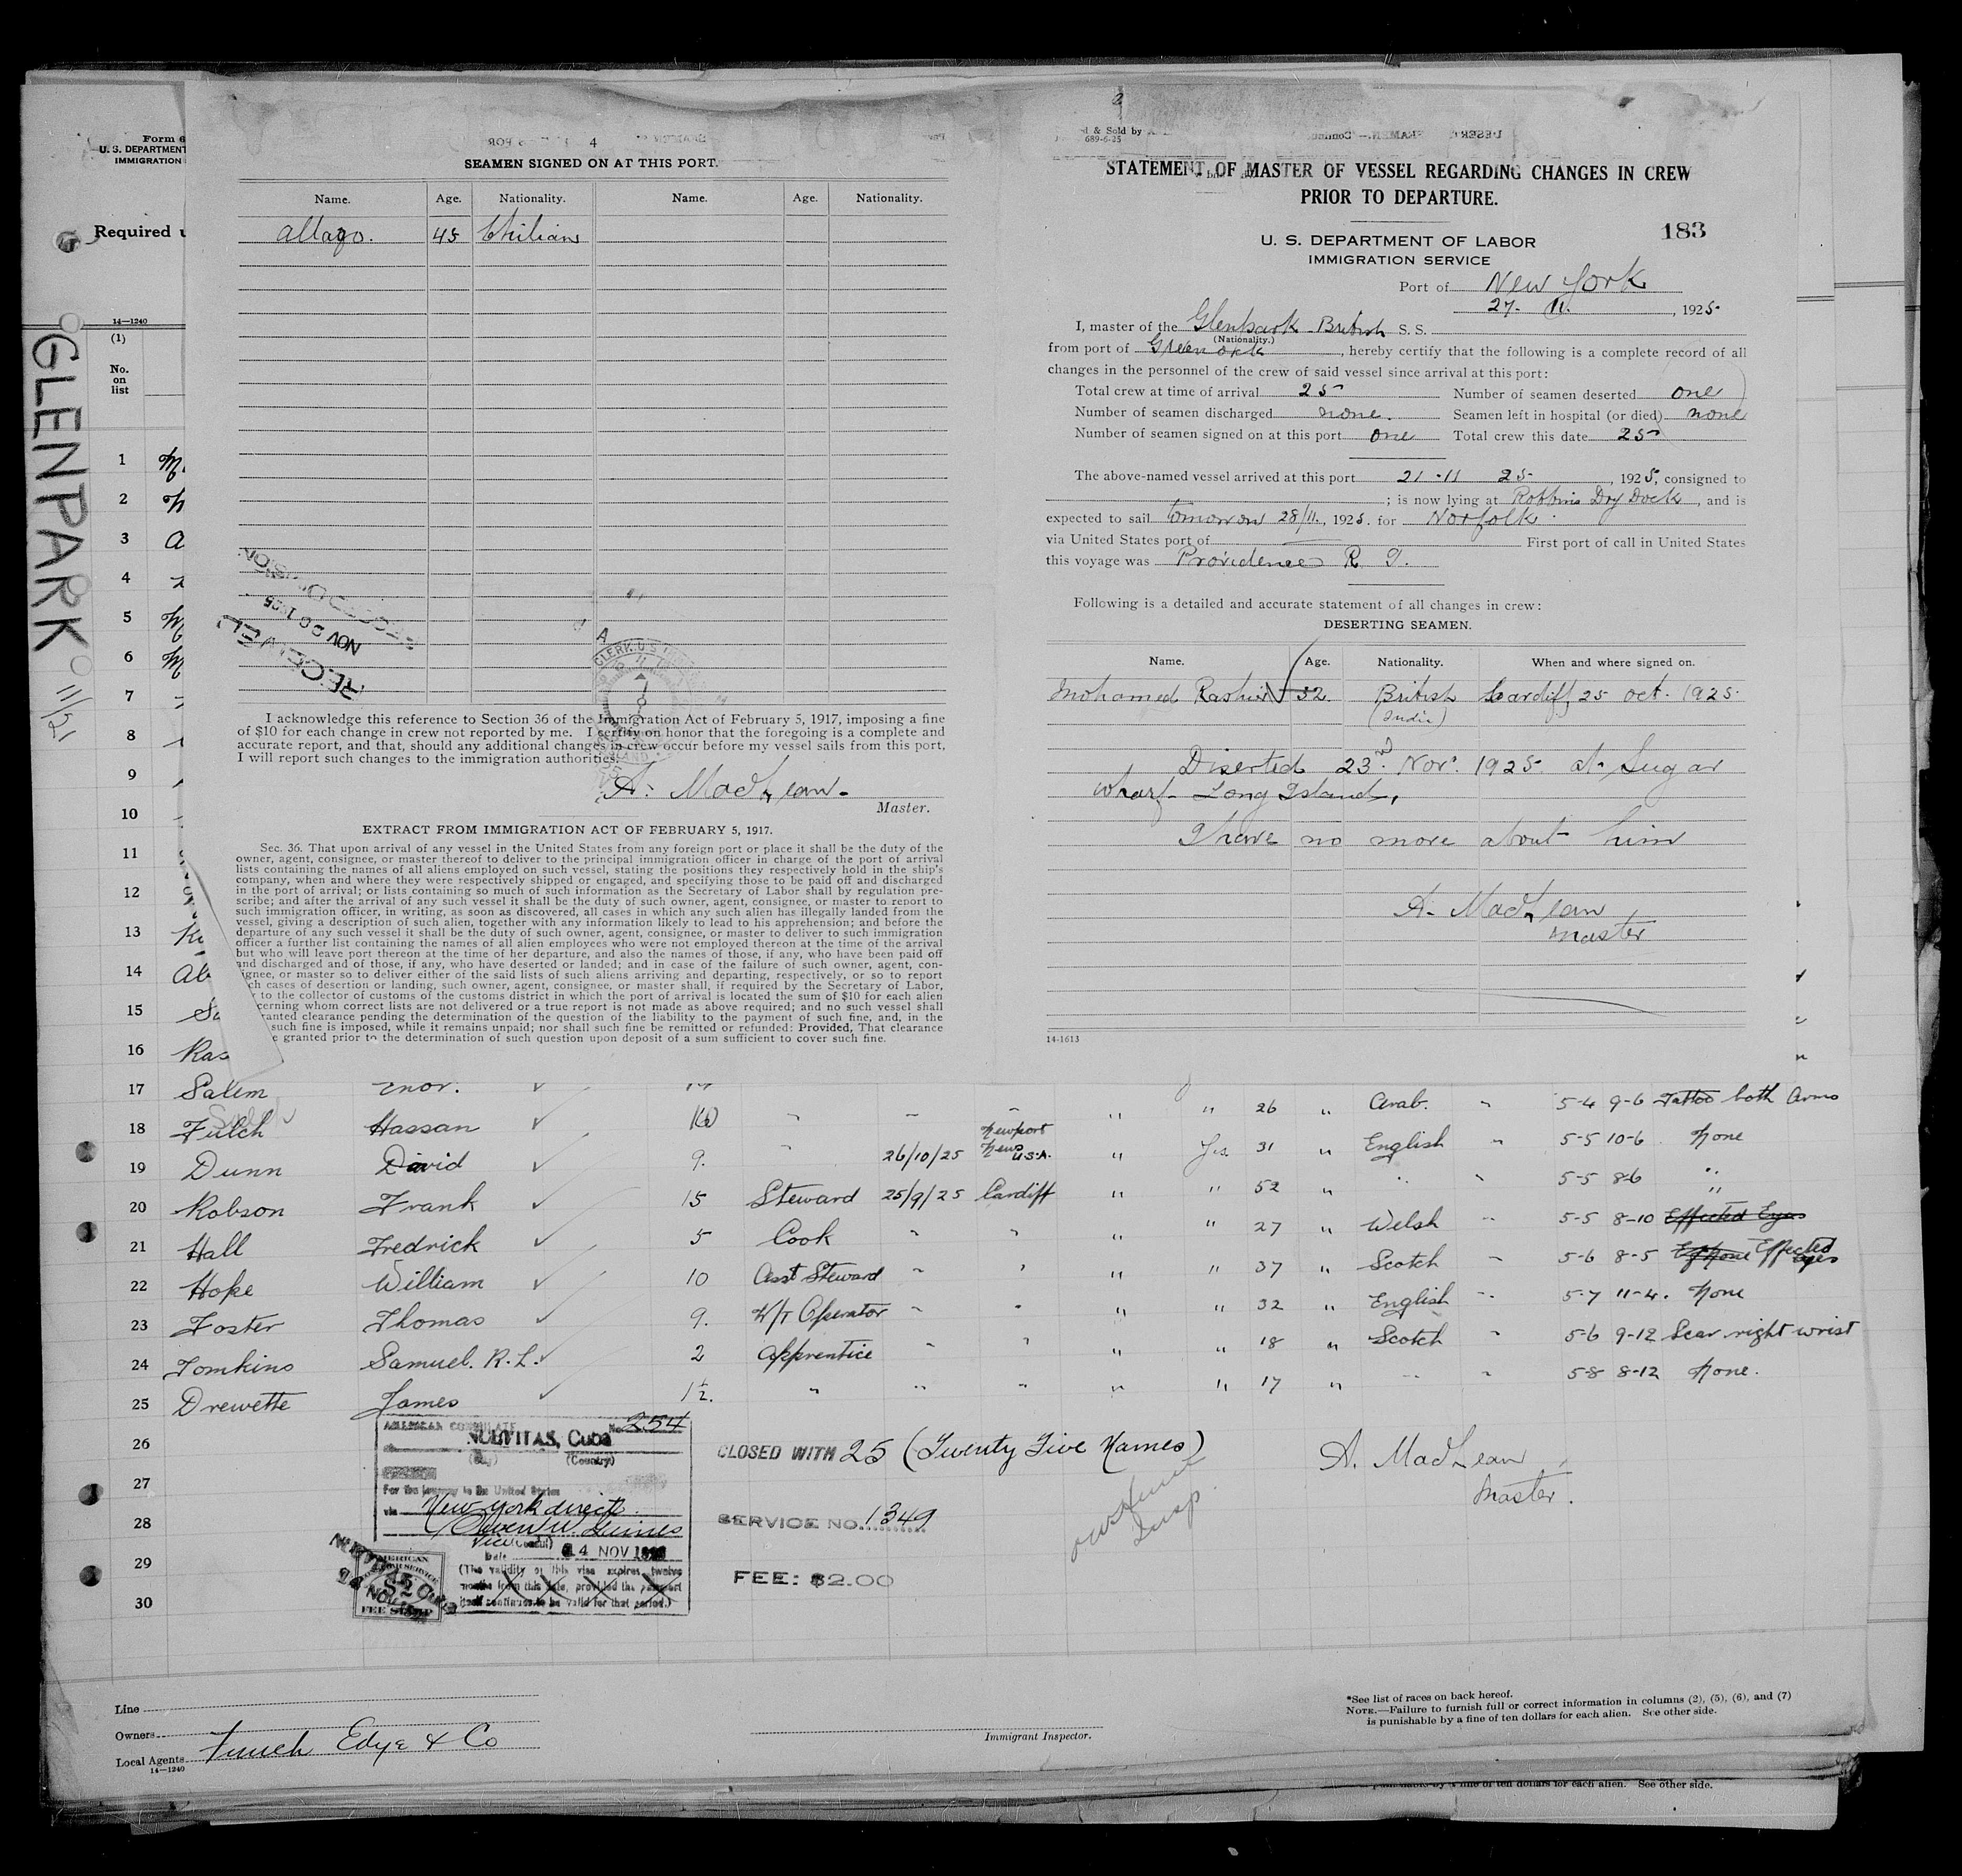 Form 6
U. S. DEPARTMENT
IMMIGRATION
Required
14—1240
(1)
No.
on
list
GLENPARK
11/21
4
SEAMEN SIGNED ON AT THIS PORT.
Name. Age. Nationality. Name. Age. Nationality.
Allago. 45 Chilian
RECEIVED
NOV 30 1925
RECORD DIVISION
I acknowledge this reference to Section 36 of the Immigration Act of February 5, 1917, imposing a fine
of $10 for each change in crew not reported by me. I certify on honor that the foregoing is a complete and
accurate report, and that, should any additional changes in crew occur before my vessel sails from this port,
I will report such changes to the immigration authorities.
A. MacLean.
Master.
EXTRACT FROM IMMIGRATION ACT OF FEBRUARY 5, 1917.
Sec. 36. That upon arrival of any vessel in the United States from any foreign port or place it shall be the duty of the
owner, agent, consignee, or master thereof to deliver to the principal immigration officer in charge of the port of arrival
lists containing the names of all aliens employed on such vessel, stating the positions they respectively hold in the ship's
company, when and where they were respectively shipped or engaged, and specifying those to be paid off and discharged
in the port of arrival; or lists containing so much of such information as the Secretary of Labor shall by regulation pre-
scribe; and after the arrival of any such vessel it shall be the duty of such owner, agent, consignee, or master to report to
such immigration officer, in writing, as soon as discovered, all cases in which any such alien has illegally landed from the
vessel, giving a description of such alien, together with any information likely to lead to his apprehension; and before the
departure of any such vessel it shall be the duty of such owner, agent, consignee, or master to deliver to such immigration
officer a further list containing the names of all alien employees who were not employed thereon at the time of the arrival
but who will leave port thereon at the time of her departure, and also the names of those, if any, who have been paid off
and discharged and of those, if any, who have deserted or landed; and in case of the failure of such owner, agent, con-
ignee, or master so to deliver either of the said lists of such aliens arriving and departing, respectively, or so to report
ch cases of desertion or landing, such owner, agent, consignee, or master shall, if required by the Secretary of Labor,
to the collector of customs of the customs district in which the port of arrival is located the sum of $10 for each alien
cerning whom correct lists are not delivered or a true report is not made as above required; and no such vessel shall
ranted clearance pending the determination of the question of the liability to the payment of such fine, and, in the
such fine is imposed, while it remains unpaid; nor shall such fine be remitted or refunded: Provided, That clearance
e granted prior to the determination of such question upon deposit of a sum sufficient to cover such fine.
d & Sold by
689-6-25
STATEMENT OF MASTER OF VESSEL REGARDING CHANGES IN CREW
PRIOR TO DEPARTURE.
183
U. S. DEPARTMENT OF LABOR
IMMIGRATION SERVICE
Port of New York
27. 11. , 1925.
I, master of the Glenpark British S. S.
(Nationality.)
from port of Greenock, hereby certify that the following is a complete record of all
changes in the personnel of the crew of said vessel since arrival at this port:
Total crew at time of arrival 25 Number of seamen deserted one
Number of seamen discharged none. Seamen left in hospital (or died) none
Number of seamen signed on at this port one Total crew this date 25
The above-named vessel arrived at this port 21-11 25, 1925, consigned to
; is now lying at Robbins Dry Dock, and is
expected to sail tomorrow 28/11., 1925. for Norfolk.
via United States port of First port of call in United States
this voyage was Providence R I.
Following is a detailed and accurate statement of all changes in crew:
DESERTING SEAMEN.
Name. Age. Nationality. When and where signed on.
Mohamed Rashid 32. British Cardiff, 25 Oct. 1925.
(India)
Diserted 23rd. Nov. 1925. at Sugar
Wharf Long Island,
I have no more about him
A. MacLean
Master
14-1613
1
2
3
4
5
6
7
8
9
10
11
12
13
14
15
16 Ras
17 Salem
18 Fulch Hassan 26 " Arab. " 5-4 9-6 Tattoo both Arms
19 Dunn David 9. " 26/10/25 Newport News U.S.A. " Yes. 31 " English " 5-5 10-6 None
20 Robson Frank 15 Steward 25/9/25 Cardiff " " 52 " " " 5-5 8-6 "
21 Hall Fredrick 5 Cook " " " " 27 " Welsh " 5-5 8-10 Effected Eyes
22 Hope William 10 Asst Steward " " " " 37 " Scotch " 5-6 8-5 Effected eyes
23 Foster Thomas 9. W/T Operator " " " " 32 " English " 5-7 11-4. None
24 Tomkins Samuel. R. L. 2 Apprentice " " " " 18 " Scotch " 5-6 9-12 Scar right wrist
25 Drewette James 1½. " " " " " 17 " " " 5-8 8-12 None.
26
27
28
29
30
AMERICAN CONSULATE No. 254
NUEVITAS, Cuba
(Country)
For the journey to the United States
via New York direct
Vice Consul
Date 14 NOV
(The validity of this visa expires twelve
months from this date, provided the passport
itself continues to be valid for that period.)
AMERICAN
$2
FEE STAMP
CLOSED WITH 25 (Twenty Five Names)
SERVICE NO. 1349
FEE: $2.00
Insp.
A. MacLean
Master.
Line
Owners
Local Agents Funch Edye & Co
14—1240
Immigrant Inspector.
*See list of races on back hereof.
NOTE.—Failure to furnish full or correct information in columns (2), (5), (6), and (7)
is punishable by a fine of ten dollars for each alien. See other side.
of ten dollars for each alien. See other side.